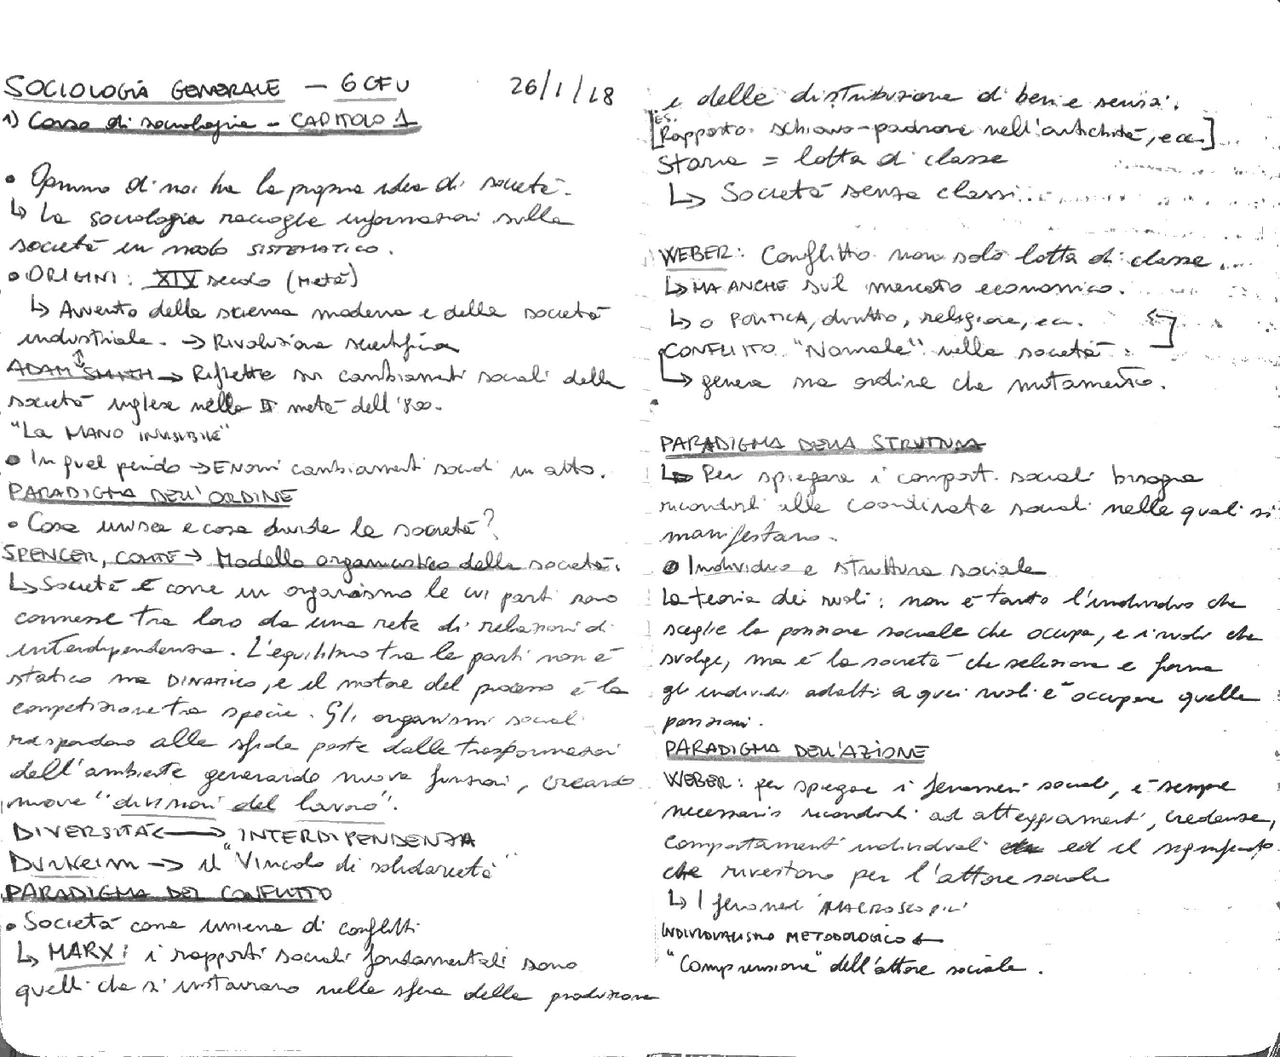 SOCIOLOGIA GENERALE — 6 CFU 26/1/18
1) Corso di sociologia - CAPITOLO 1
• Ognuno di noi ha la propria idea di società.
↳ La sociologia raccoglie informazioni sulla
società in modo SISTEMATICO.
• ORIGINI: XIX secolo (metà)
↳ Avvento della scienza moderna e della società
industriale. → Rivoluzione scientifica
ADAM SMITH → Riflette sui cambiamenti sociali della
società inglese nella II metà dell'800.
"La MANO INVISIBILE"
• In quel periodo → Enormi cambiamenti sociali in atto.
PARADIGMA DELL'ORDINE
• Cosa unisce e cosa divide la società?
SPENCER, COMTE → Modello organicistico della società.
↳ Società è come un organismo le cui parti sono
connesse tra loro da una rete di relazioni di
interdipendenza. L'equilibrio tra le parti non è
statico ma DINAMICO, e il motore del processo è la
competizione tra specie. Gli organismi sociali
rispondono alle sfide poste dalle trasformazioni
dell'ambiente generando nuove funzioni, creando
nuove "divisioni del lavoro".
DIVERSITÀ ⟶ INTERDIPENDENZA
Durkeim → il "Vincolo di solidarietà"
PARADIGMA DEL CONFLITTO
• Società come insieme di conflitti
↳ MARX: i rapporti sociali fondamentali sono
quelli che si instaurano nella sfera della produzione
e delle distribuzione di beni e servizi.
[ES. Rapporto schiavo-padrone nell'antichità, ecc.]
Storia = lotta di classe
↳ Società senza classi...
WEBER: Conflitto non solo lotta di classe...
↳ MA ANCHE sul mercato economico.
↳ o POLITICA, diritto, religione, ecc.
CONFLITTO "Normale" nella società.
↳ genera sia ordine che mutamento.
PARADIGMA DELLA STRUTTURA
↳ Per spiegare i comport. sociali bisogna
ricondurli alle coordinate sociali nelle quali si
manifestano.
• Individuo e struttura sociale
La teoria dei ruoli: non è tanto l'individuo che
sceglie la posizione sociale che occupa, e i ruoli che
svolge, ma è la società che seleziona e forma
gli individui adatti a quei ruoli e occupare quelle
posizioni.
PARADIGMA DELL'AZIONE
WEBER: per spiegare i fenomeni sociali, è sempre
necessario ricondurli ad atteggiamenti, credenze,
comportamenti individuali ed il significato
che rivestono per l'attore sociale
↳ I fenomeni MACROSCOPICI
INDIVIDUALISMO METODOLOGICO ←
"Comprensione" dell'attore sociale.